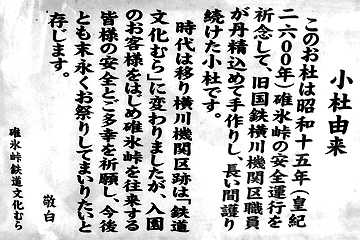 小社由来
このお社は昭和十五年（皇紀
二六〇〇年）碓氷峠の安全運行を
祈念して、旧国鉄横川機関区職員
が丹精込めて手作りし、長い間護り
続けた小社です。
時代は移り横川機関区跡は「鉄道
文化むら」に変わりましたが、入園
のお客様をはじめ碓氷峠を往来する
皆様の安全とご多幸を祈願し、今後
とも末永くお祭りしてまいりたいと
存じます。
敬白
碓氷峠鉄道文化むら